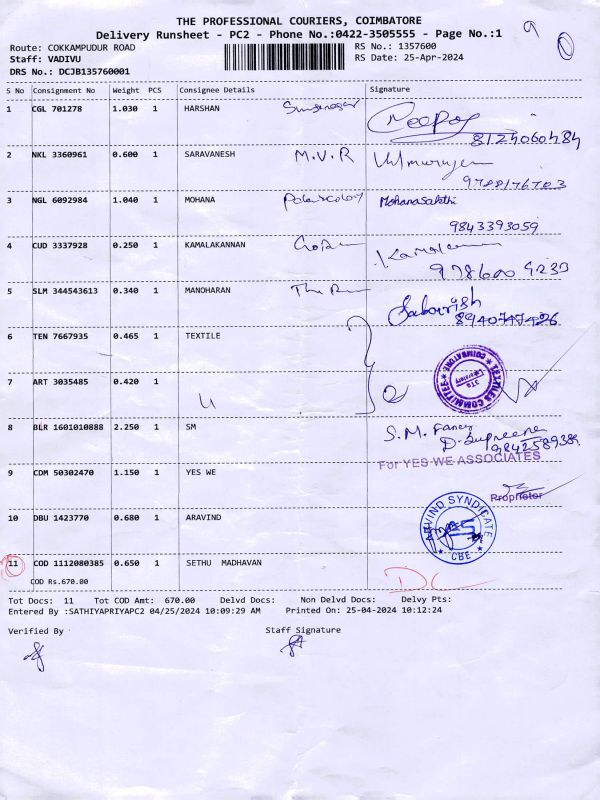 THE PROFESSIONAL COURIERS, COIMBATORE
Delivery Runsheet - PC2 - Phone No.:0422-3505555 - Page No.:1
Route: COKKAMPUDUR ROAD RS No.: 1357600
Staff: VADIVU RS Date: 25-Apr-2024
DRS No.: DCJB135760001
S No Consignment No Weight PCS Consignee Details Signature
1 CGL 701278 1.030 1 HARSHAN
8124060484
2 NKL 3360961 0.600 1 SARAVANESH M.V.R
9788176703
3 NGL 6092984 1.040 1 MOHANA Mohanasakthi
9843393059
4 CUD 3337928 0.250 1 KAMALAKANNAN
5 SLM 344543613 0.340 1 MANOHARAN Sabourish
8940747426
6 TEN 7667935 0.465 1 TEXTILE
TEXTILES COMMITTEE COIMBATORE
7 ART 3035485 0.420 1
8 BLR 1601010888 2.250 1 SM S.M. Fancy
9842589389
For YES WE ASSOCIATES
9 CDM 50302470 1.150 1 YES WE
Proprietor
10 DBU 1423770 0.680 1 ARAVIND
ARVIND SYNDICATE CBE
11 COD 1112080385 0.650 1 SETHU MADHAVAN
COD Rs.670.00
DC
Tot Docs: 11 Tot COD Amt: 670.00 Delvd Docs: Non Delvd Docs: Delvy Pts:
Entered By :SATHIYAPRIYAPC2 04/25/2024 10:09:29 AM Printed On: 25-04-2024 10:12:24
Verified By Staff Signature